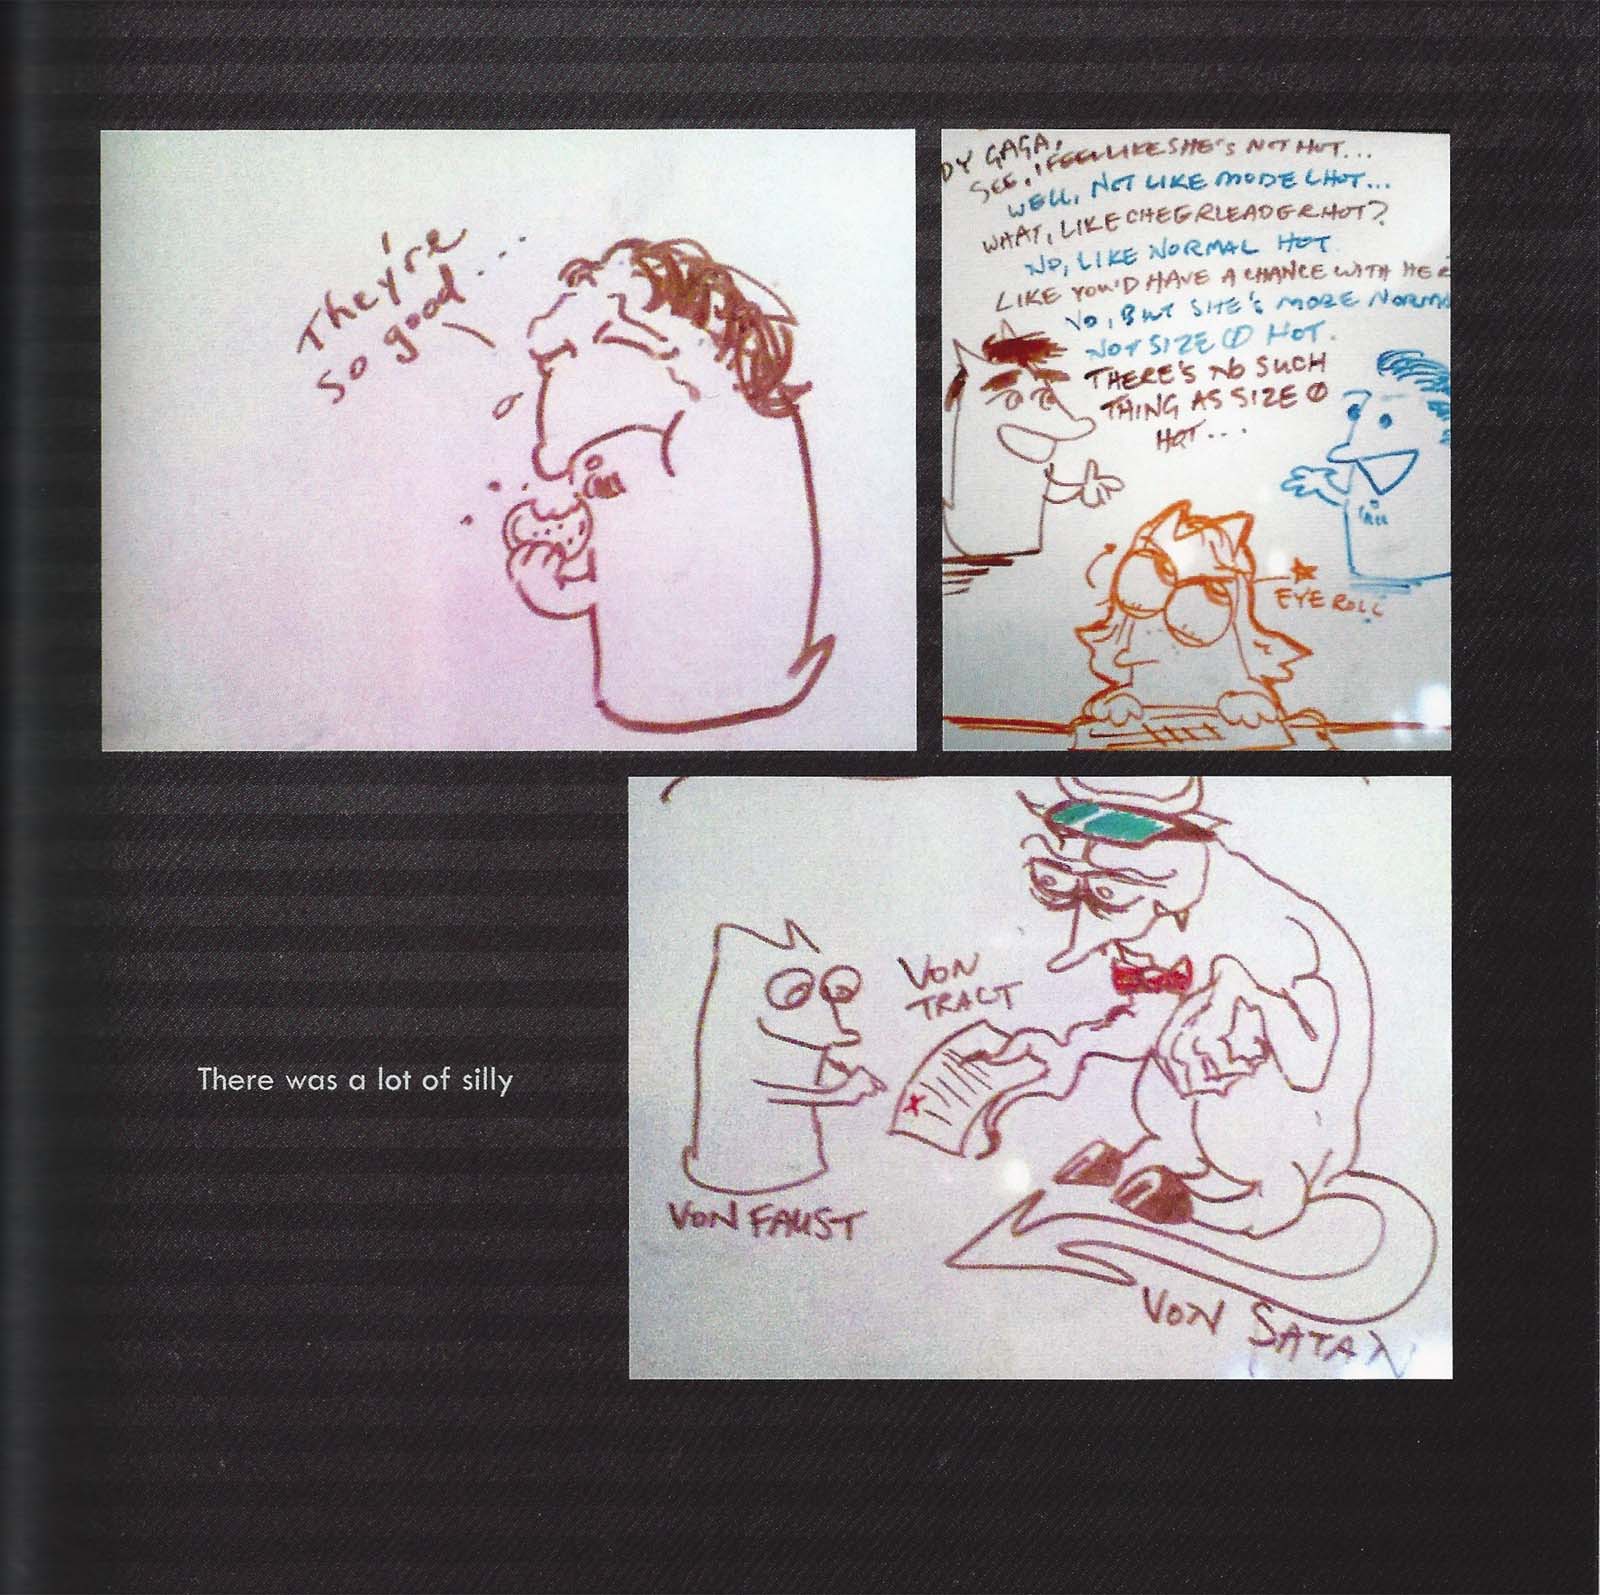 They're
so good...
DY GAGA,
SEE, I FEEL LIKE SHE'S NOT HOT...
WELL, NOT LIKE MODEL HOT...
WHAT, LIKE CHEERLEADER HOT?
NO, LIKE NORMAL HOT
LIKE YOU'D HAVE A CHANCE WITH HER
NO, BUT SHE'S MORE NORMA
NOT SIZE 0 HOT.
THERE'S NO SUCH
THING AS SIZE 0
HOT...
EYE ROLL
VON
TRACT
VON FAUST
VON SATAN
There was a lot of silly